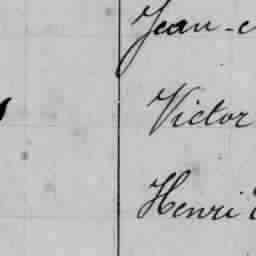 Jean-
Victor
Henri